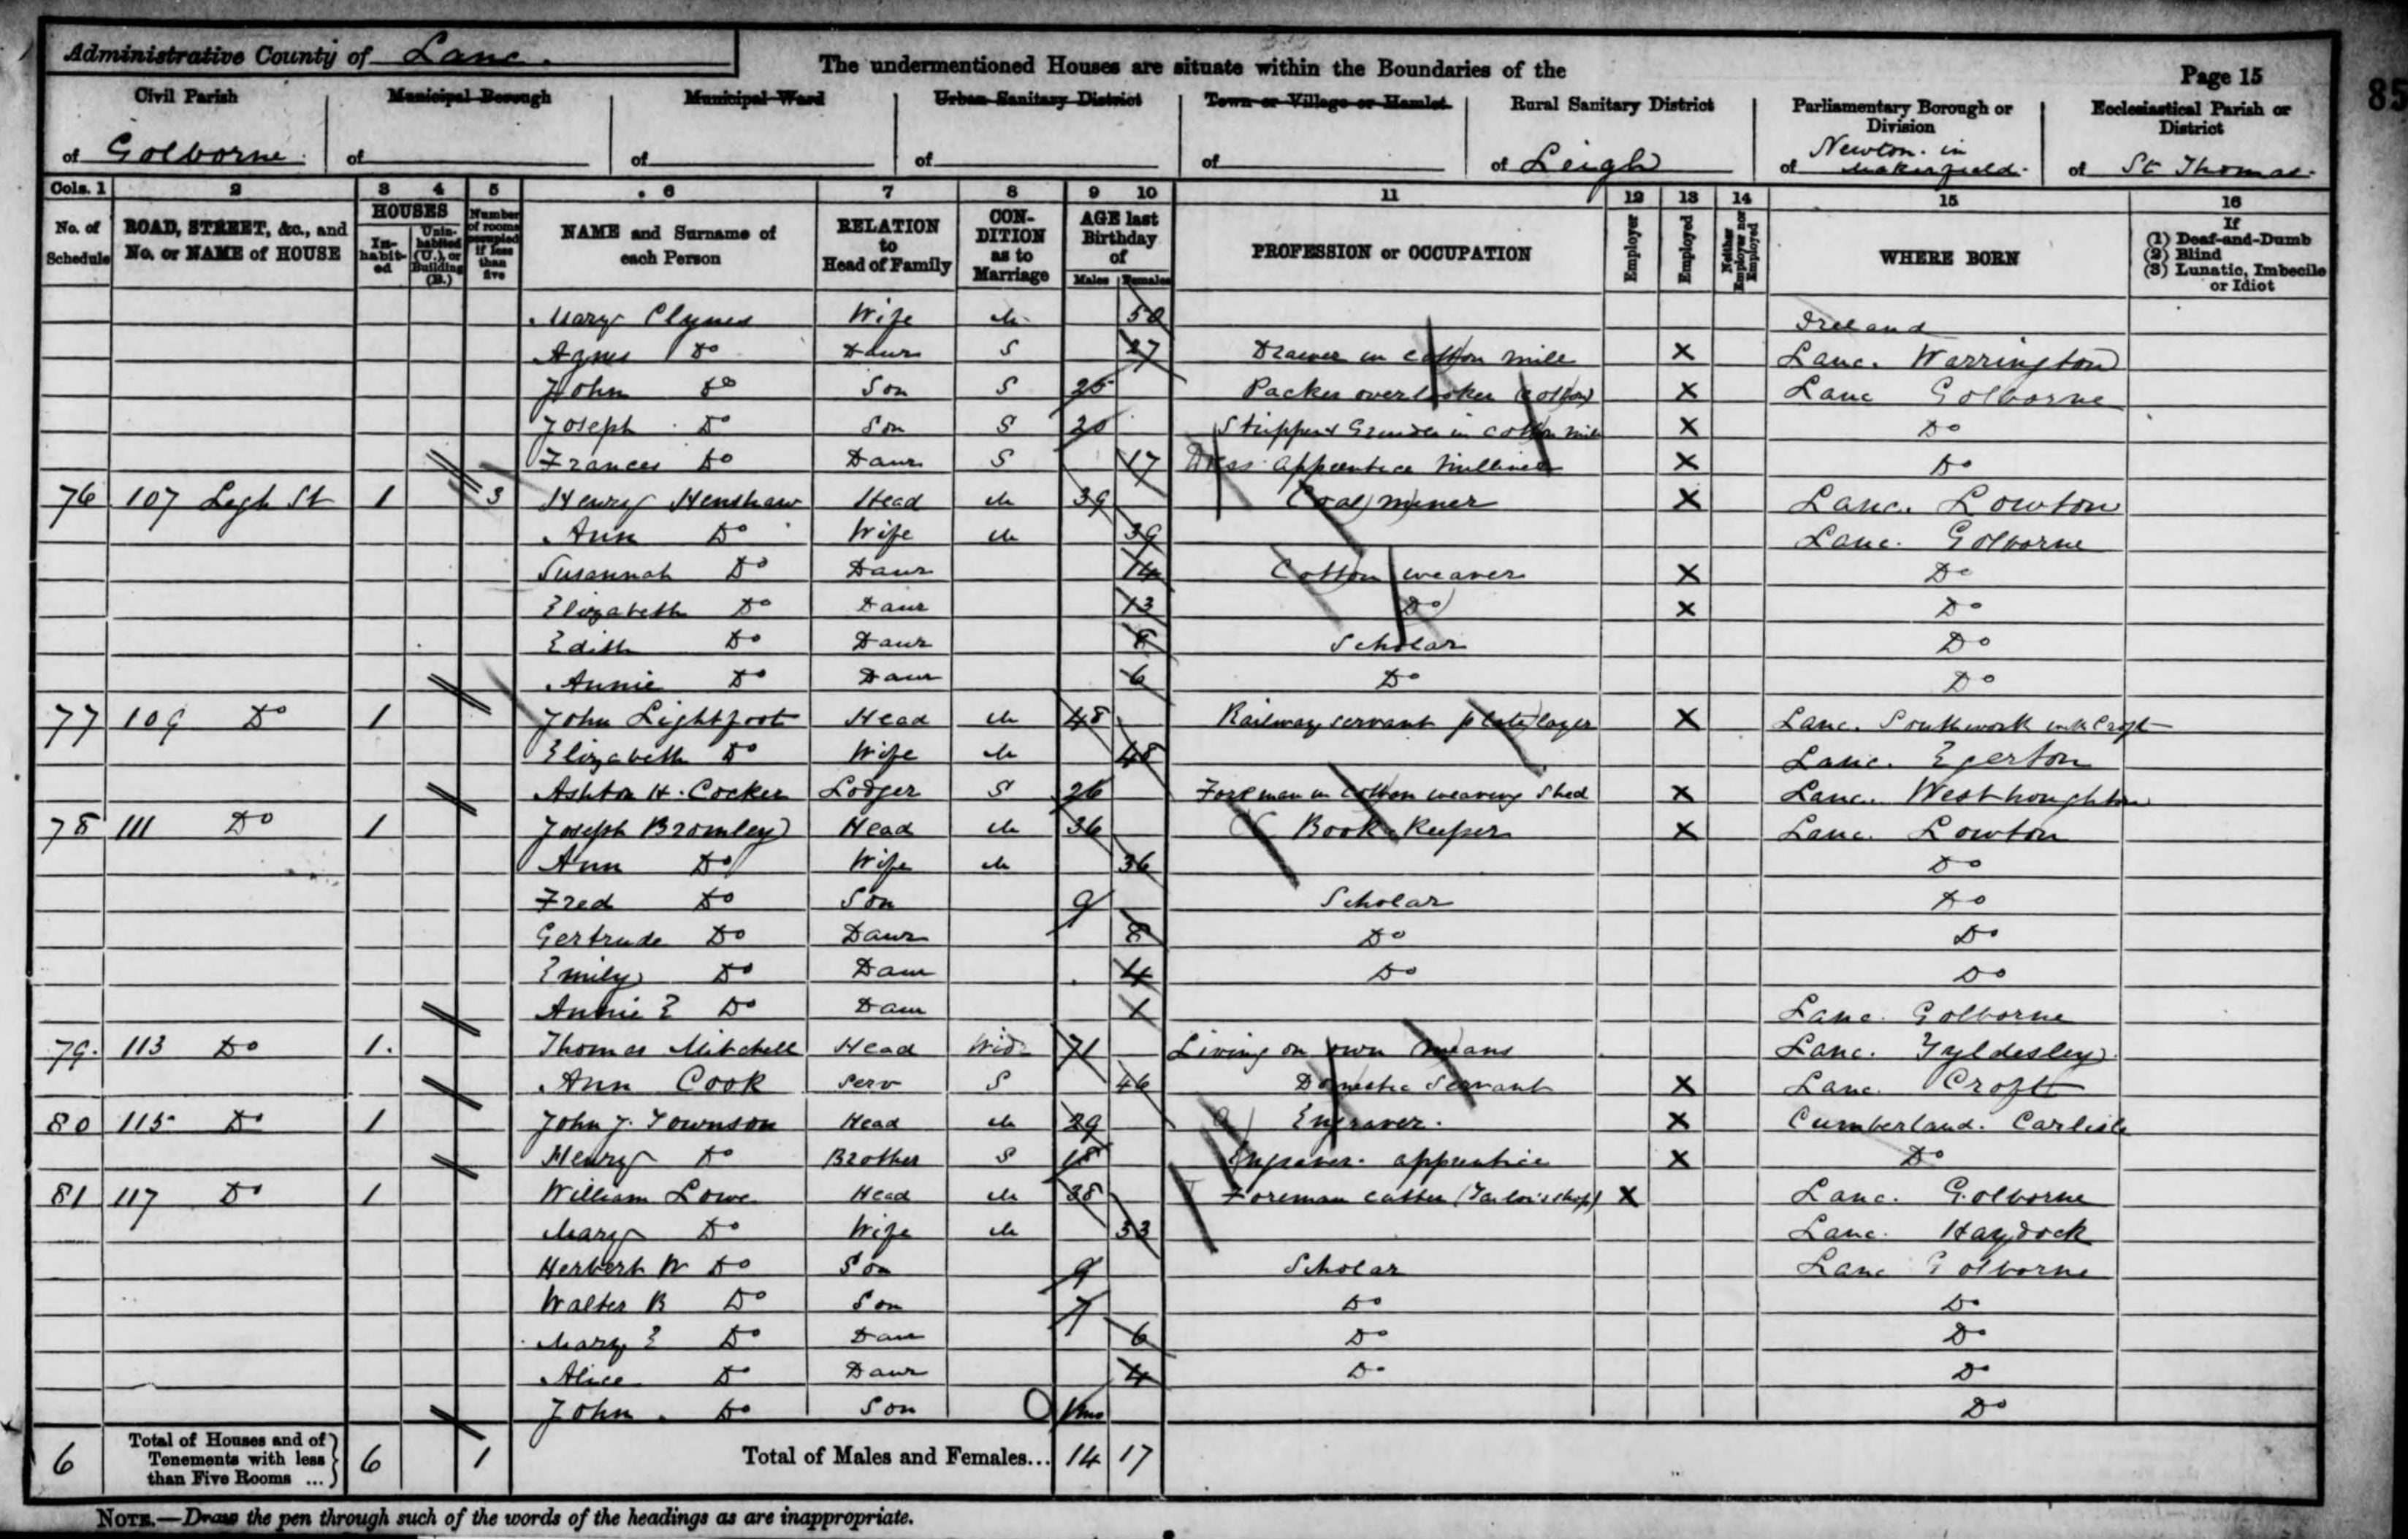 Administrative County of Lanc.
The undermentioned Houses are situate within the Boundaries of the
Page 15
85
Civil Parish of Golborne
Municipal Borough of
Municipal Ward of
Urban Sanitary District of
Town or Village or Hamlet of
Rural Sanitary District of Leigh
Parliamentary Borough or Division of Newton in Makerfield
Ecclesiastical Parish or District of St Thomas
Cols. 1 2 3 4 5 6 7 8 9 10 11 12 13 14 15 16
No. of Schedule
ROAD, STREET, &c., and No. or NAME of HOUSE
HOUSES
In-habit-ed
Unin-habited (U.), or Building (B.)
Number of rooms occupied if less than five
NAME and Surname of each Person
RELATION to Head of Family
CON-DITION as to Marriage
AGE last Birthday of
Males Females
PROFESSION or OCCUPATION
Employer
Employed
Neither Employer nor Employed
WHERE BORN
If
(1) Deaf-and-Dumb
(2) Blind
(3) Lunatic, Imbecile or Idiot
Mary Clynes Wife M 50 Ireland
Agnes Do Daur S 27 Drawer in cotton mill X Lanc. Warrington
John Do Son S 25 Packer overlooker (cotton) X Lanc Golborne
Joseph Do Son S 20 Stripper & Grinder in cotton mill X Do
Frances Do Daur S 17 Dress apprentice Milliner X Do
76 107 Legh St 1 3 Henry Henshaw Head M 39 Coal miner X Lanc. Lowton
Ann Do Wife M 39 Lanc. Golborne
Susannah Do Daur 14 Cotton weaver X Do
Elizabeth Do Daur 13 Do X Do
Edith Do Daur 8 Scholar Do
Annie Do Daur 6 Do Do
77 109 Do 1 John Lightfoot Head M 48 Railway servant platelayer X Lanc. Southwork with Croft
Elizabeth Do Wife M 48 Lanc. Egerton
Ashton H. Cocker Lodger S 26 Foreman in Cotton weaving Shed X Lanc. Westhoughton
78 111 Do 1 Joseph Bromley Head M 36 Book Keeper X Lanc. Lowton
Ann Do Wife M 36 Do
Fred Do Son 9 Scholar Do
Gertrude Do Daur 8 Do Do
Emily Do Daur 4 Do Do
Annie E Do Daur 1 Lanc. Golborne
79. 113 Do 1. Thomas Mitchell Head Wid 71 Living on own means Lanc. Tyldesley
Ann Cook Serv S 46 Domestic Servant X Lanc. Croft
80 115 Do 1 John J. Townson Head M 29 Engraver. X Cumberland. Carlisle
Henry Do Brother S 18 Engraver. apprentice X Do
81 117 Do 1 William Lowe Head M 38 Foreman cutter (Tailor's shop) X Lanc. Golborne
Mary Do Wife M 33 Lanc. Haydock
Herbert W Do Son 9 Scholar Lanc Golborne
Walter B Do Son 7 Do Do
Mary E Do Daur 6 Do Do
Alice Do Daur 4 Do Do
John Do Son 1mo Do
6 Total of Houses and of Tenements with less than Five Rooms ... 6 1 Total of Males and Females... 14 17
NOTE.—Draw the pen through such of the words of the headings as are inappropriate.